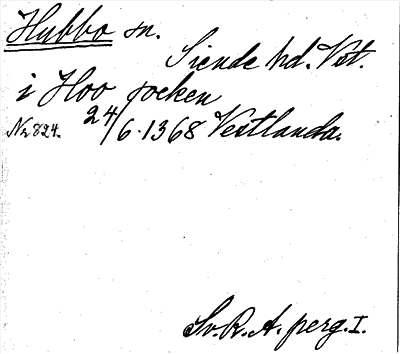 Hubbo sn.
Siende hd. Vst.
i Hoo socken
Nr 824. 24/6 1368 Vestlanda.
Sv. R. A. perg. I.